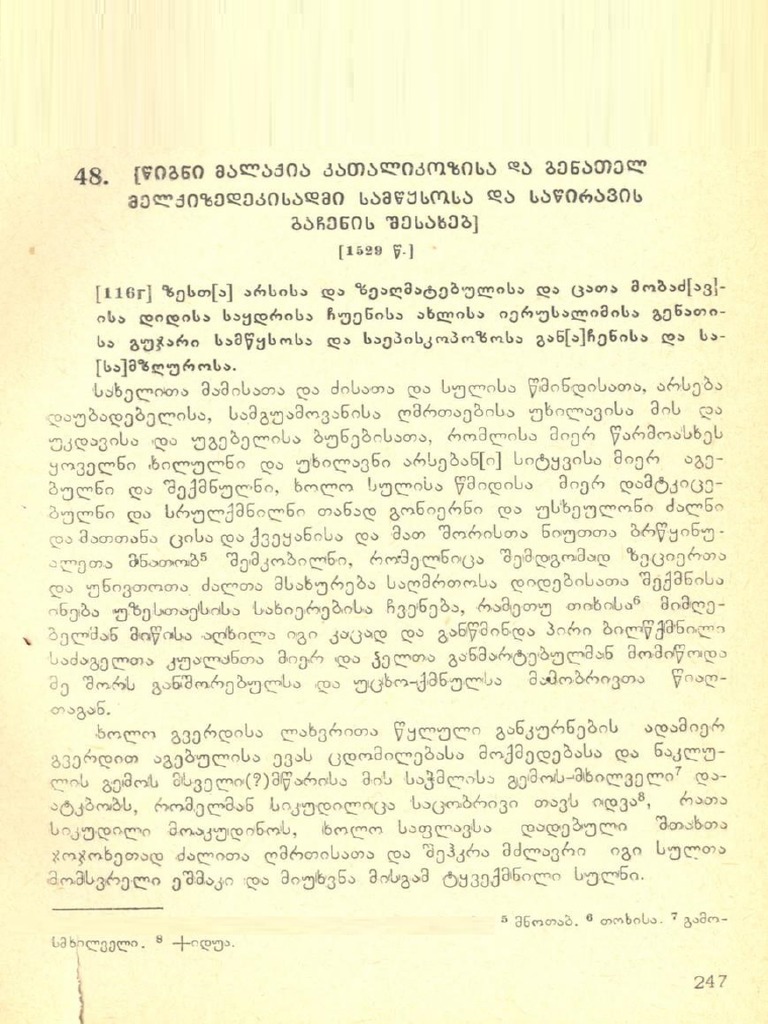 48. [წიგნი მალაქია კათალიკოზისა და გენათელ
მელქიზედეკისადმი სამწყსოსა და საწირავის
გაჩენის შესახებ]
[1529 წ.]
[116r] ზესთ[ა] არსისა და ზეაღმატებულისა და ცათა მობაძ[ავ]-
ისა დიდისა საყდრისა ჩუენისა ახლისა იერუსალიმისა გენათი-
სა გუჯარი სამწყსოსა და საეპისკოპოზოსა გან[ა]ჩენისა და სა-
[სა]მზღუროსა.
სახელითა მამისათა და ძისათა და სულისა წმინდისათა, არსება
დაუბადებელისა, სამგუამოვანისა ღმრთაებისა უხილავისა მის და
უკდავისა და უგებელისა ბუნებისათა, რომლისა მიერ წარმოასხეს
ყოველნი ხილულნი და უხილავნი არსებან[ი] სიტყვისა მიერ აგე-
ბულნი და შექმნულნი, ხოლო სულისა წმიდისა მიერ დამტკიცე-
ბულნი და სრულქმნილნი თანად გონიერნი და უსხეულონი ძალნი
და მათთანა ცისა და ქვეყანისა და მათ შორისთა ნიუთთა ბრწყინუ-
ალეთა მნათობ⁵ შემკობილნი, რომელნიცა შემდგომად ზეციერთა
და უნივთოთა ძალთა მსახურება საღმრთოსა დიდებისათა შექმნისა
ინება უზესთაესისა სახიერებისა ჩვენება, რამეთუ თიხისა⁶ მიმღე-
ბელმან მიწისა აღხილა იგი კაცად და განწმინდა პირი ბილწქმნილი
საძაგელთა კუალანთა მიერ და ჴელთა განმარტებულმან მომიწოდა
მე შორს განშორებულსა და უცხო-ქმნულსა მამობრივთა წიაღ-
თაგან.
ხოლო გვერდისა ლახვრითა წყლული განკურნების ადამიერ
გვერდით აგებულისა ევას ცდომილებასა მოქმედებასა და ნაკლუ-
ლის გემოს მსველი(?)მწარისა მის საჭმლისა გემოს-მხილველი⁷ და-
ატკბობს, რომელმან სიკუდილიცა საცობრივი თავს იდვა⁸, რათა
სიკუდილი მოაკუდინოს, ხოლო საფლავსა დადებული შთახთა
ჯოჯოხეთად ძალითა ღმრთისათა და შეჰკრა მძლავრი იგი სულთა
მომსვრელი ეშმაკი და მიუხვნა მისგამ ტყვექმნილი სულნი.
⁵ მნოთაბ. ⁶ თოხისა. ⁷ გამო-
სმხილველი. ⁸ +იდუა.
247